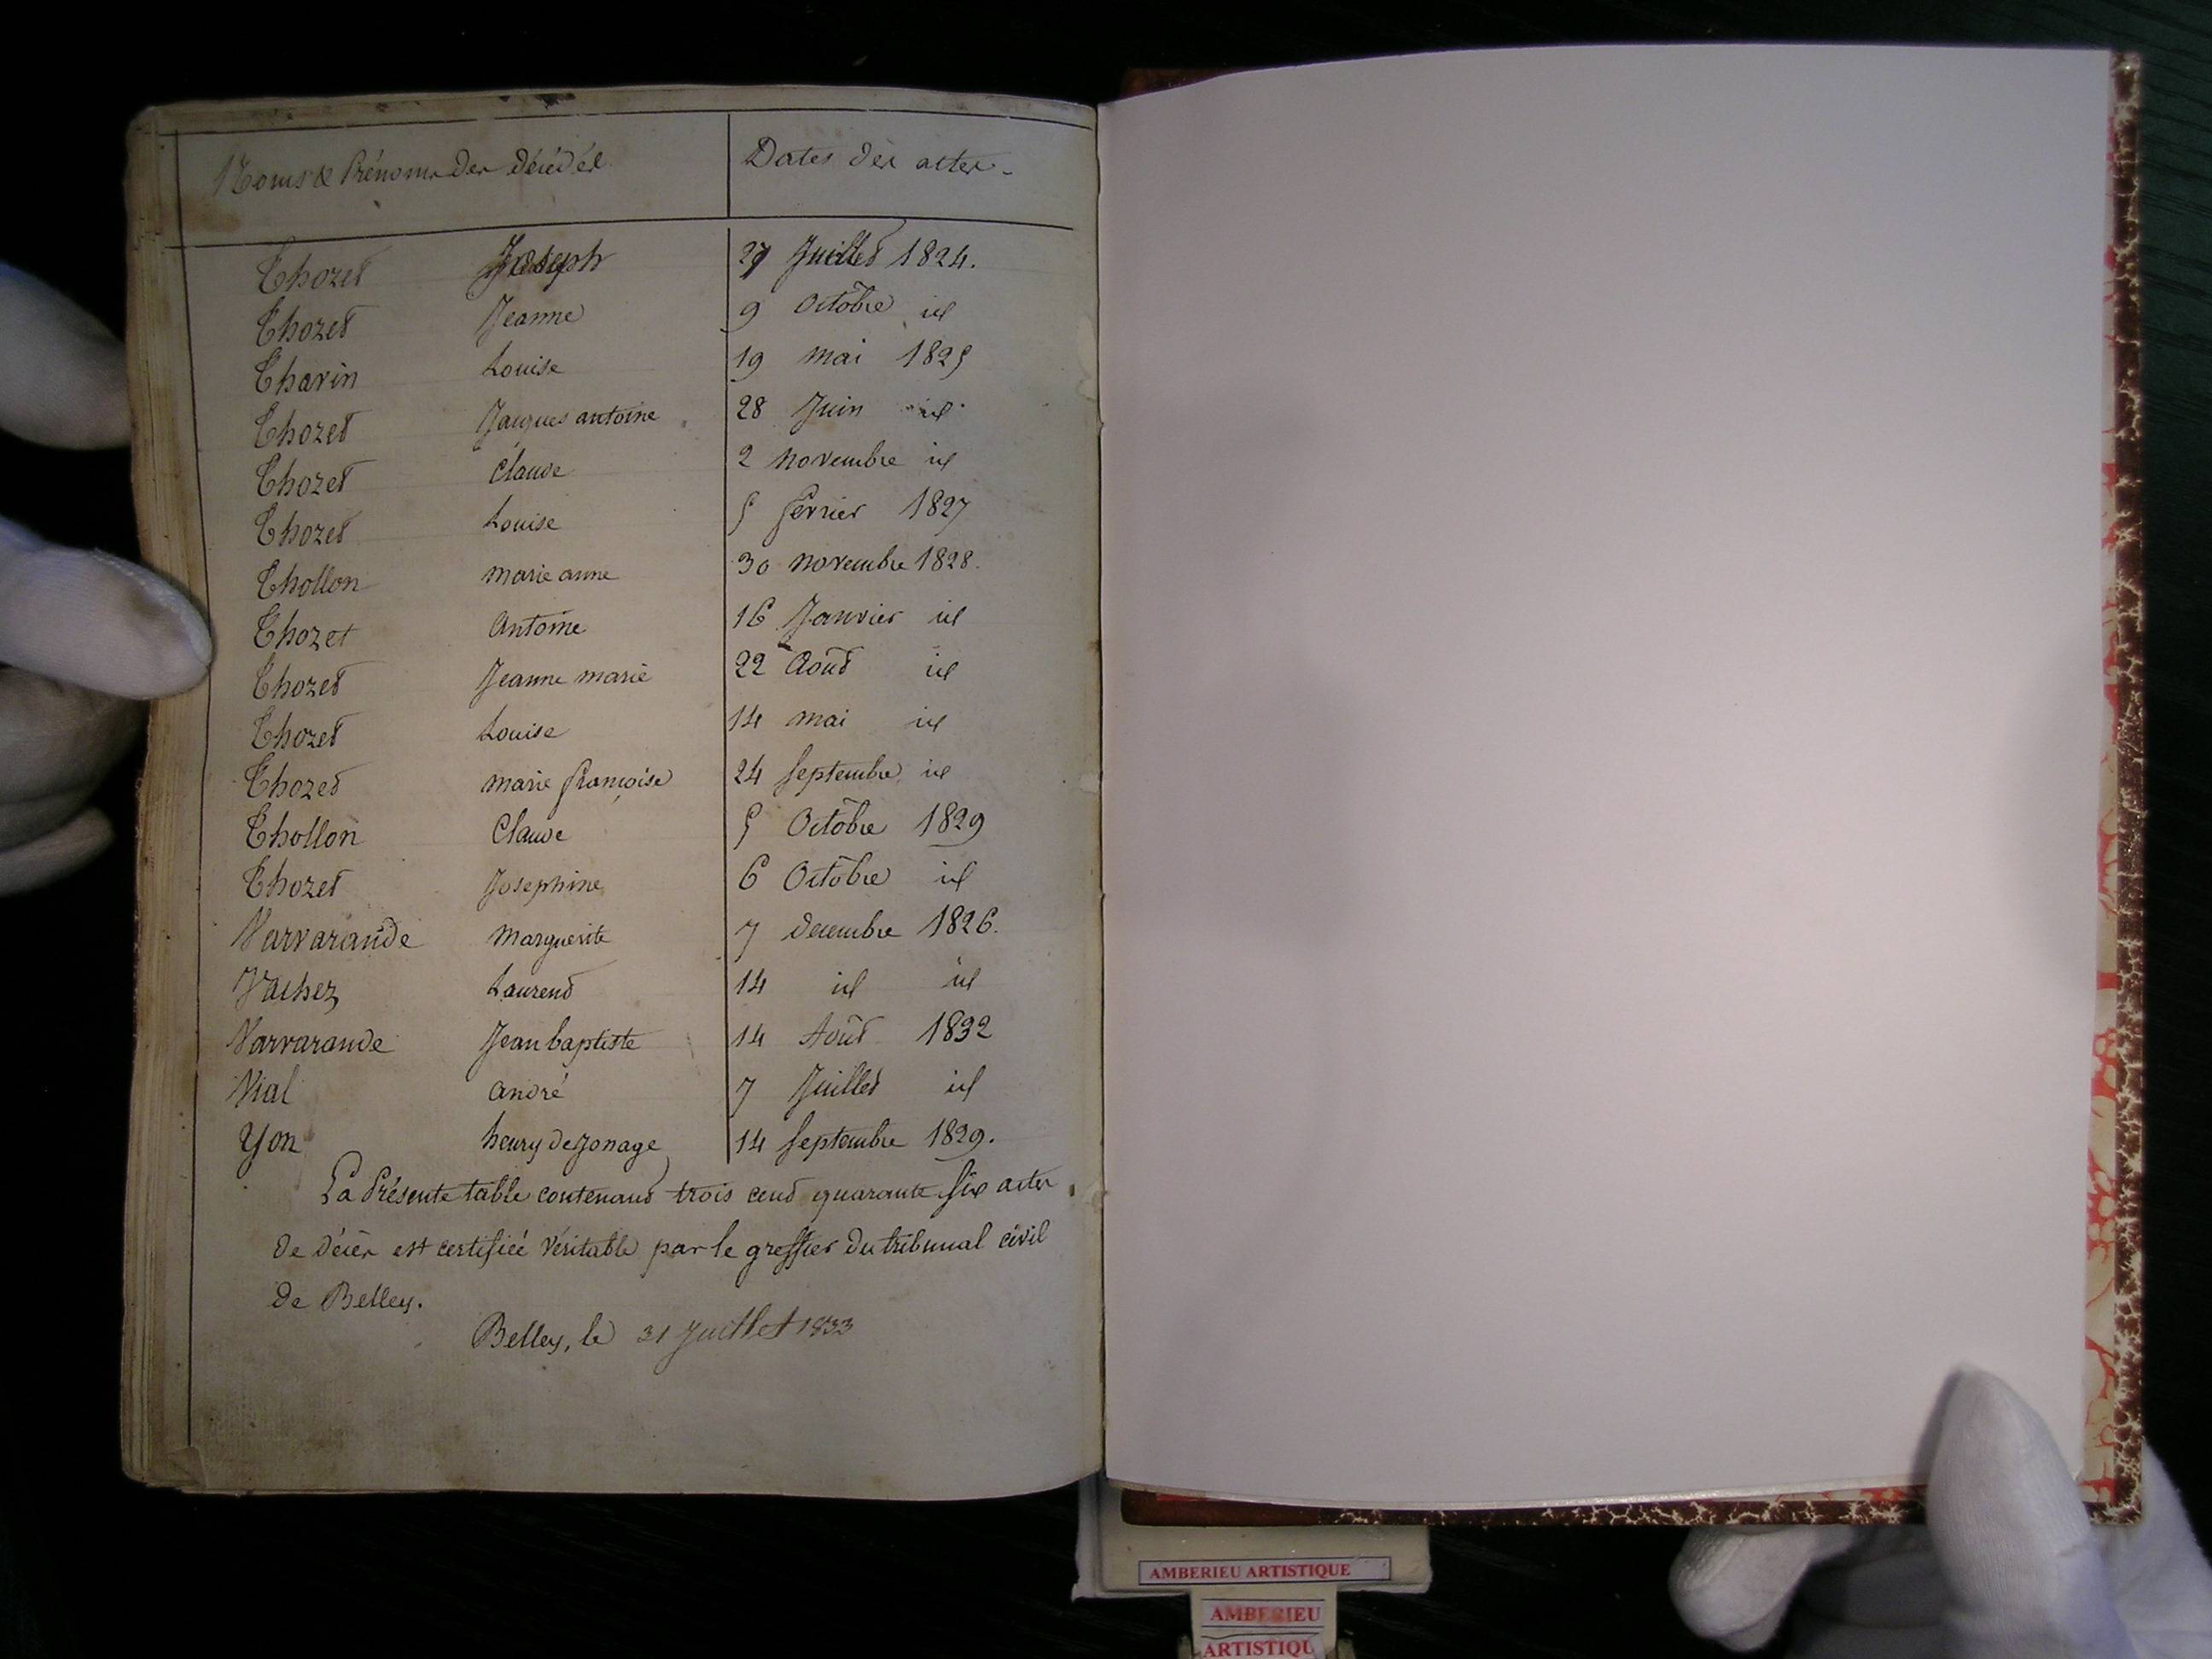 Noms & Prénoms des décédés Dates des actes.
Thozet Joseph 27 Juillet 1824.
Thozet Jeanne 9 Octobre id
Tharin Louise 19 mai 1825
Thozet Jacques antoine 28 Juin id
Thozet Claude 2 novembre id
Thozet Louise 5 février 1827
Thollon marie anne 30 novembre 1828.
Thozet Antoine 16 Janvier id
Thozet Jeanne marie 22 Août id
Thozet Louise 14 mai id
Thozet marie françoise 24 septembre id
Thollon Claude 5 Octobre 1829
Thozet Josephine 6 Octobre id
Varvarande Marguerite 7 decembre 1826.
Vachez Laurend 14 id id
Varvarande Jean baptiste 14 Août 1832
Vial andré 7 Juillet id
Yon henry de Jonage 14 septembre 1829.
La Présente table contenant trois cend quarante six actes
de décès est certifiée véritable par le greffier du tribunal civil
de Belley.
Belley, le 31 Juillet 1833
AMBERIEU ARTISTIQUE
AMBERIEU
ARTISTIQU